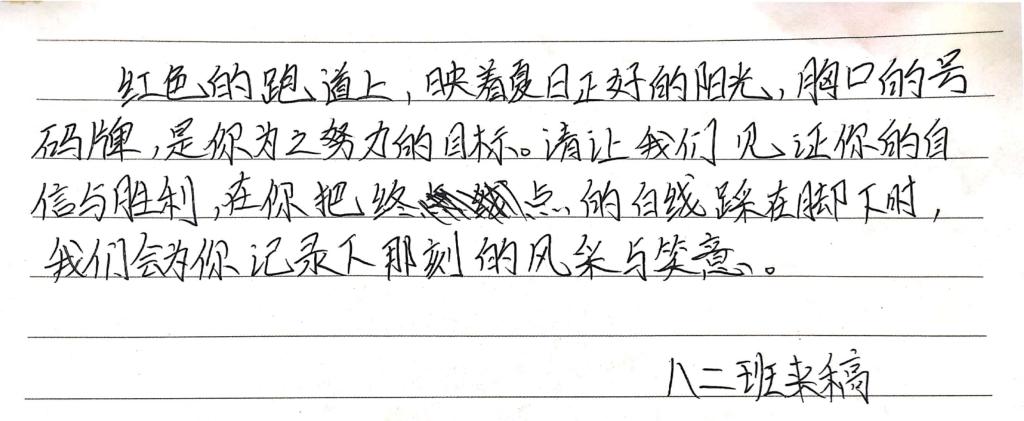 红色的跑道上，映着夏日正好的阳光，胸口的号
码牌，是你为之努力的目标。请让我们见证你的自
信与胜利，在你把终点的白线踩在脚下时，
我们会为你记录下那刻的风采与笑意。
八二班来稿